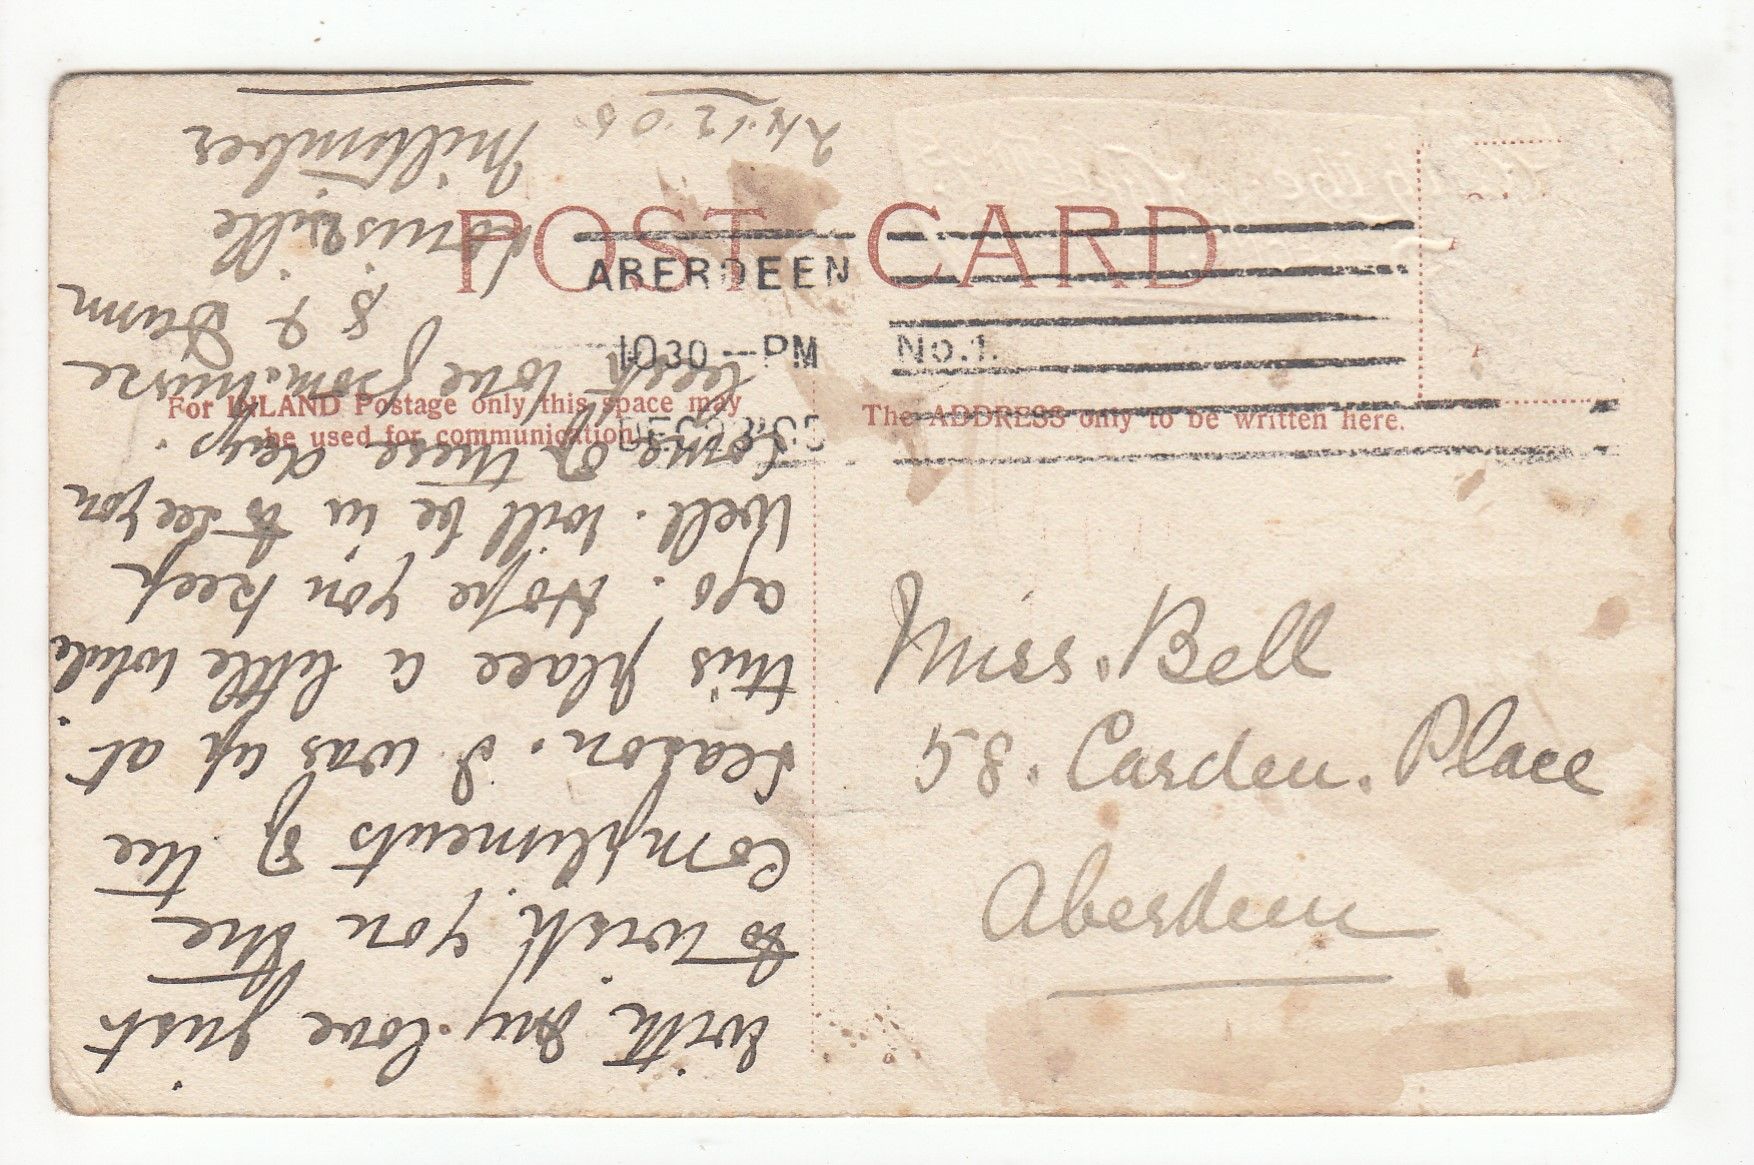 POST CARD
ABERDEEN
10 30 — PM
No. 1.
For INLAND Postage only this space may
be used for communication
The ADDRESS only to be written here.
Miss. Bell
58. Carden. Place
Aberdeen
Milltimber
with my love just
to wish you the
compliments of the
season. I was up at
this place a little while
ago. Hope you keep
well. Will be in to see you
some of these days.
love from nurse
Dunn